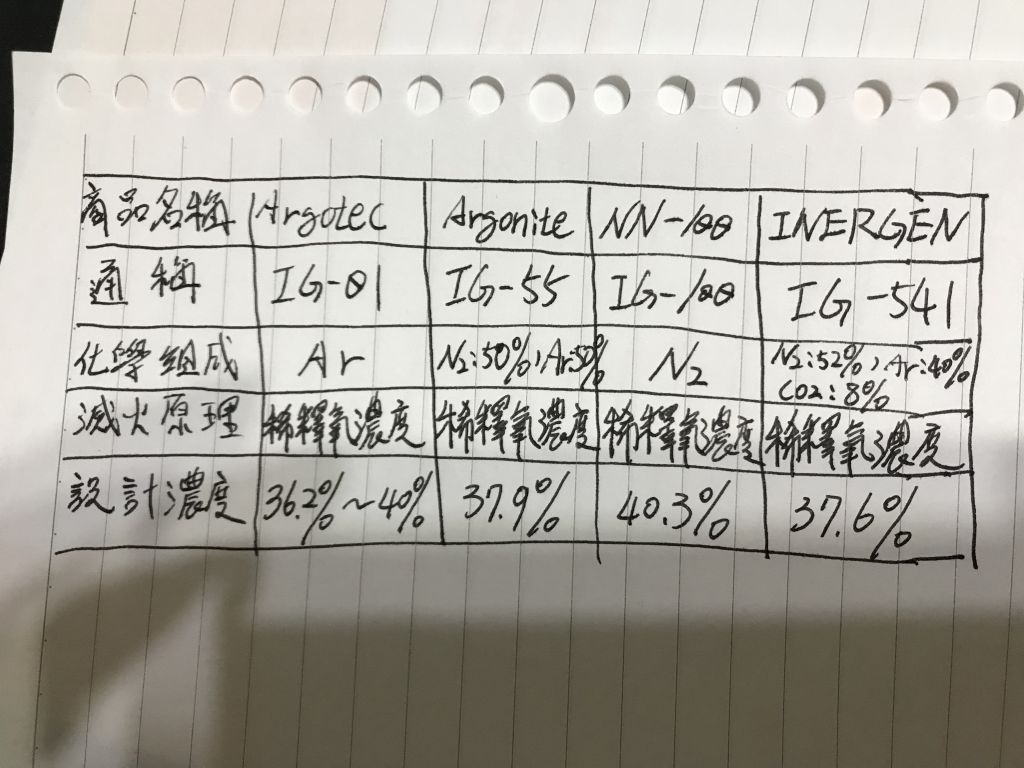 商品名稱 Argotec Argonite NN-100 INERGEN
通稱 IG-01 IG-55 IG-100 IG-541
化學組成 Ar N2:50%,Ar:50% N2 N2:52%,Ar:40%
CO2:8%
滅火原理 稀釋氧濃度 稀釋氧濃度 稀釋氧濃度 稀釋氧濃度
設計濃度 36.2%~40% 37.9% 40.3% 37.6%